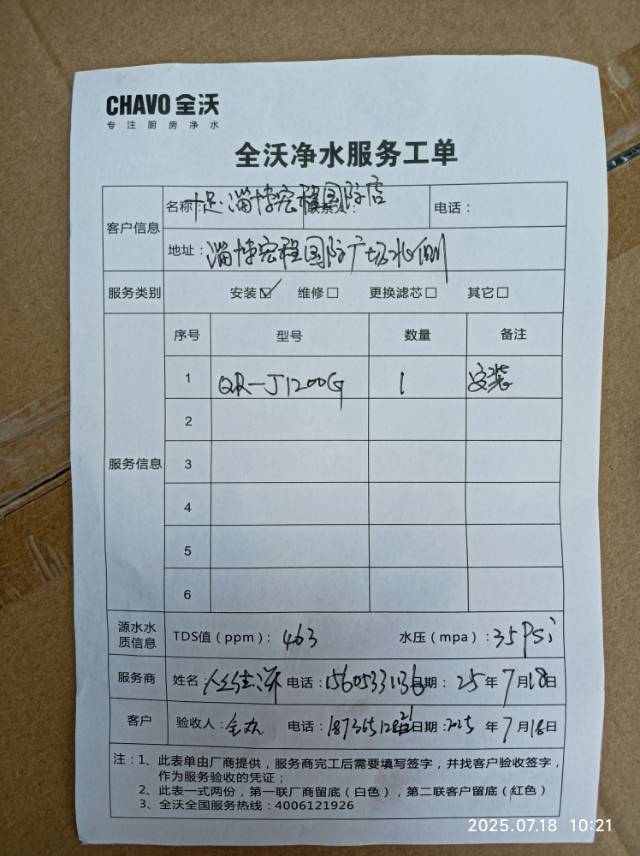 CHAVO 全沃
专注厨房净水
全沃净水服务工单
客户信息
名称: 十足·淄博宏程国际店 联系人: 电话:
地址: 淄博宏程国际广场北侧
服务类别 安装☑ 维修□ 更换滤芯□ 其它□
服务信息
序号 型号 数量 备注
1 QR-J1200G 1 安装
2
3
4
5
6
源水水质信息 TDS值（ppm）: 463 水压（mpa）: 35Psi
服务商 姓名: 电话: 日期: 25 年 7 月 18 日
客户 验收人: 电话: 日期: 2025 年 7 月 18 日
注：1、此表单由厂商提供，服务商完工后需要填写签字，并找客户验收签字，
作为服务验收的凭证；
2、此表一式两份，第一联厂商留底（白色），第二联客户留底（红色）
3、全沃全国服务热线：4006121926
2025.07.18 10:21